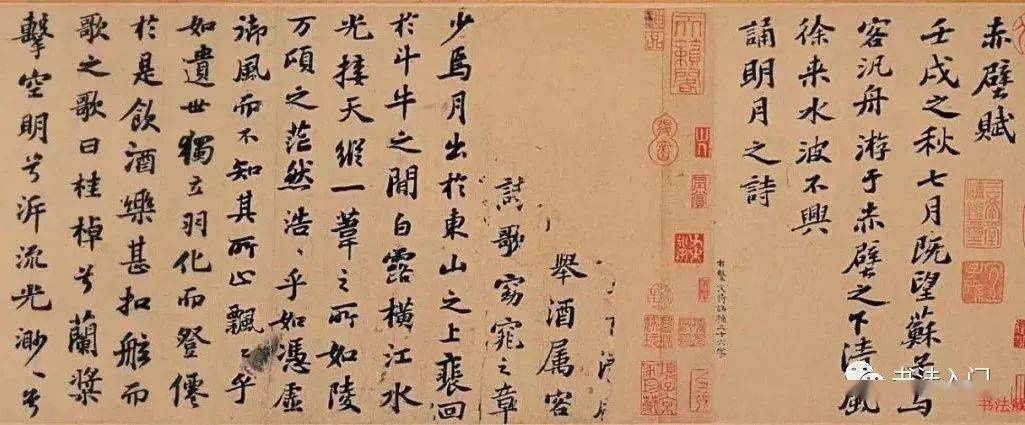 赤壁賦
壬戌之秋七月既望蘇子与
客汎舟游于赤壁之下清風
徐来水波不興
舉酒属客
誦明月之詩
歌窈窕之章
少焉月出於東山之上裴回
於斗牛之閒白露橫江水
光接天縱一葦之所如陵
万頃之茫然浩、乎如憑虛
御風而不知其所止飄〻乎
如遺世獨立羽化而登僊
於是飲酒樂甚扣舷而
歌之歌曰桂棹兮蘭槳
擊空明兮泝流光渺、兮
天籟閣
书法入门